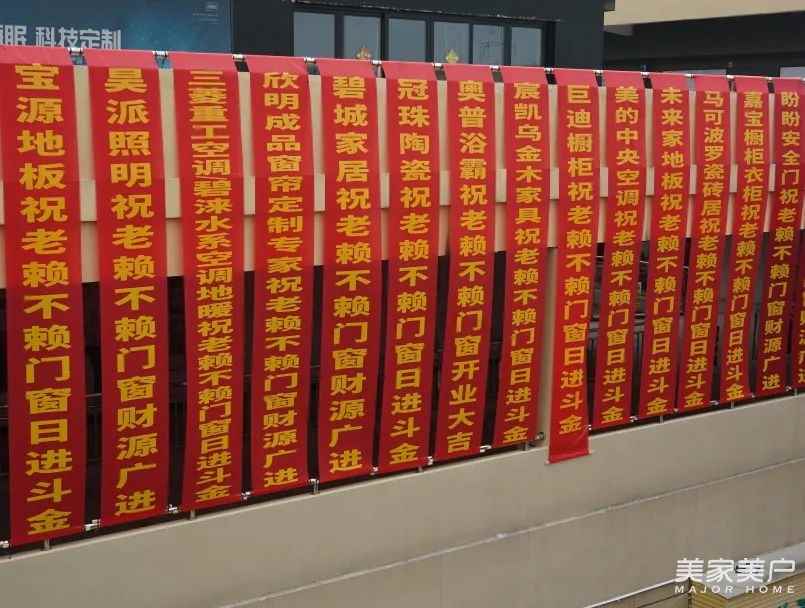 眠 科技定制
宝源地板祝老赖不赖门窗日进斗金
昊派照明祝老赖不赖门窗财源广进
三菱重工空调碧涞水系空调地暖祝老赖不赖门窗日进斗金
欣明成品窗帘定制专家祝老赖不赖门窗财源广进
碧城家居祝老赖不赖门窗财源广进
冠珠陶瓷祝老赖不赖门窗日进斗金
奥普浴霸祝老赖不赖门窗开业大吉
宸凯乌金木家具祝老赖不赖门窗日进斗金
巨迪橱柜祝老赖不赖门窗日进斗金
美的中央空调祝老赖不赖门窗日进斗金
未来家地板祝老赖不赖门窗日进斗金
马可波罗瓷砖居祝老赖不赖门窗日进斗金
嘉宝橱柜衣柜祝老赖不赖门窗日进斗金
盼盼安全门祝老赖不赖门窗财源广进
美家美户
MAJOR HOME